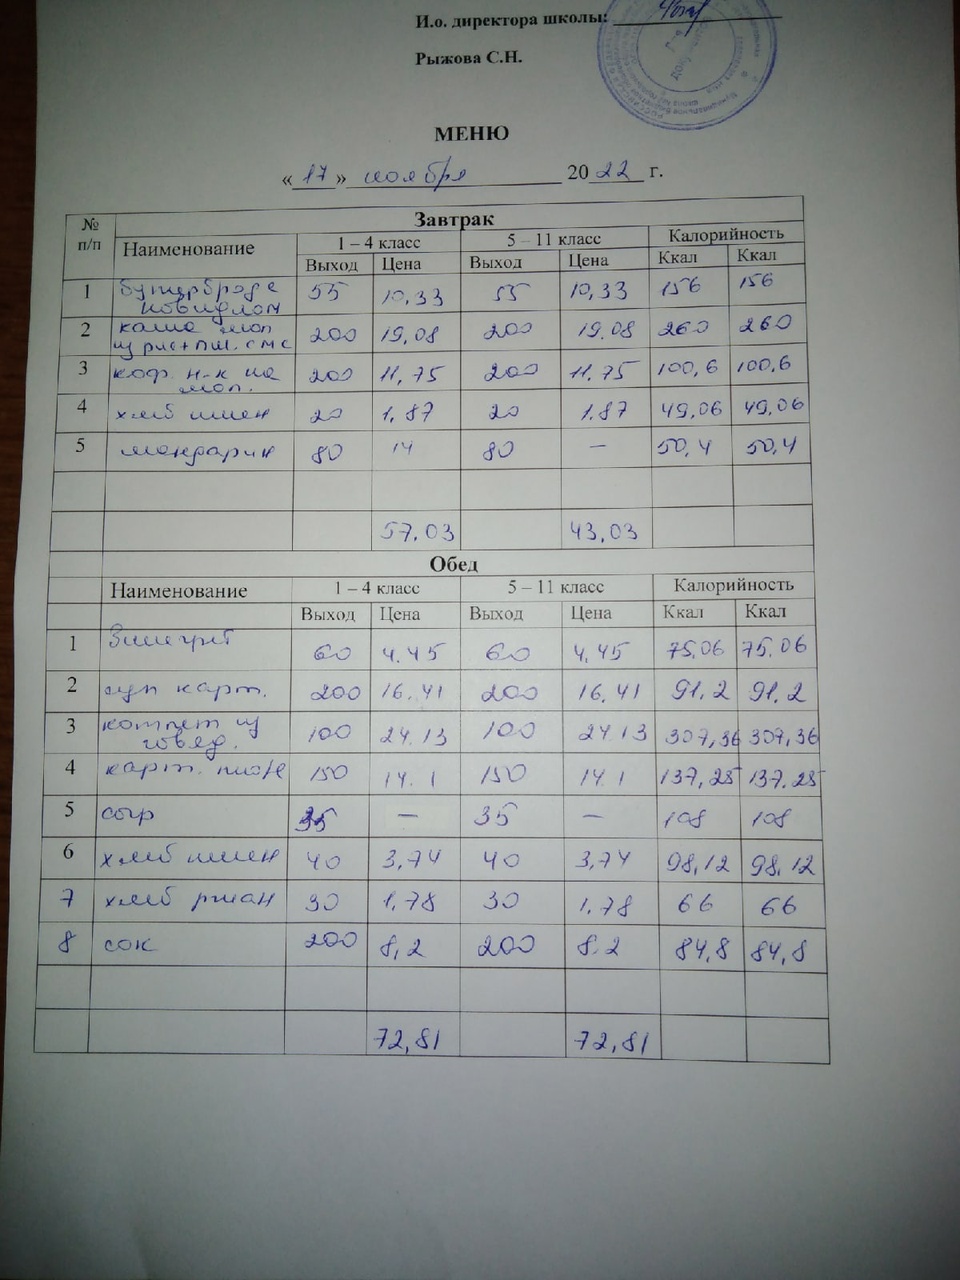 И.о. директора школы:
Рыжова С.Н.
МЕНЮ
« 17 » ноября 2022 г.
№ п/п Завтрак
Наименование 1 – 4 класс 5 – 11 класс Калорийность
Выход Цена Выход Цена Ккал Ккал
1 бутерброд с повидлом 55 10,33 55 10,33 156 156
2 каша мол из рис+пш. с мс 200 19,08 200 19.08 260 260
3 коф. н-к на мол. 200 11,75 200 11.75 100,6 100,6
4 хлеб пшен 20 1,87 20 1.87 49,06 49,06
5 мандарин 80 14 80 – 50,4 50,4
57.03 43,03
Обед
Наименование 1 – 4 класс 5 – 11 класс Калорийность
Выход Цена Выход Цена Ккал Ккал
1 Винегрет 60 4.45 60 4,45 75,06 75.06
2 суп карт. 200 16.41 200 16,41 91,2 91,2
3 котлет из говяд. 100 24.13 100 24.13 307,36 307,36
4 карт. пюре 150 14.1 150 14.1 137,25 137.25
5 сыр 35 – 35 – 108 108
6 хлеб пшен 40 3,74 40 3,74 98,12 98,12
7 хлеб ржан 30 1,78 30 1,78 66 66
8 сок 200 8,2 200 8.2 84,8 84,8
72,81 72,81